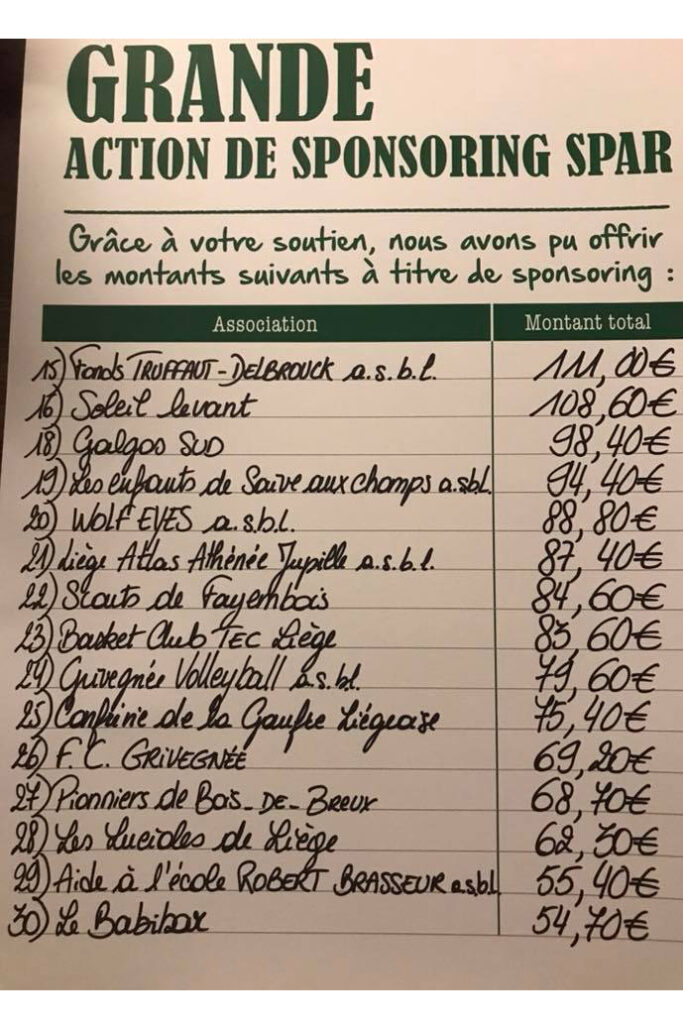 GRANDE
ACTION DE SPONSORING SPAR
Grâce à votre soutien, nous avons pu offrir
les montants suivants à titre de sponsoring :
Association Montant total
15) Fonds TRUFFAUT-DELBROUCK a.s.b.l. 111,00€
16) Soleil levant 108,60€
18) Galgos SUD 98,40€
19) Les enfants de Saive aux champs a.sbl. 94,40€
20) WOLF EYES a.s.b.l. 88,80€
21) Liège Atlas Athénée Jupille a.s.b.l. 87,40€
22) Scouts de Fayembois 84,60€
23) Basket Club TEC Liège 83,60€
24) Grivegnée Volleyball a.s.bl. 79,60€
25) Confrérie de la Gaufre Liégeoise 75,40€
26) F.C. GRIVEGNÉE 69,20€
27) Pionniers de Bois-DE-BREUX 68,70€
28) Les Lucioles de Liège 62,30€
29) Aide à l'école ROBERT BRASSEUR asbl 55,40€
30) Le Babibar 54,70€